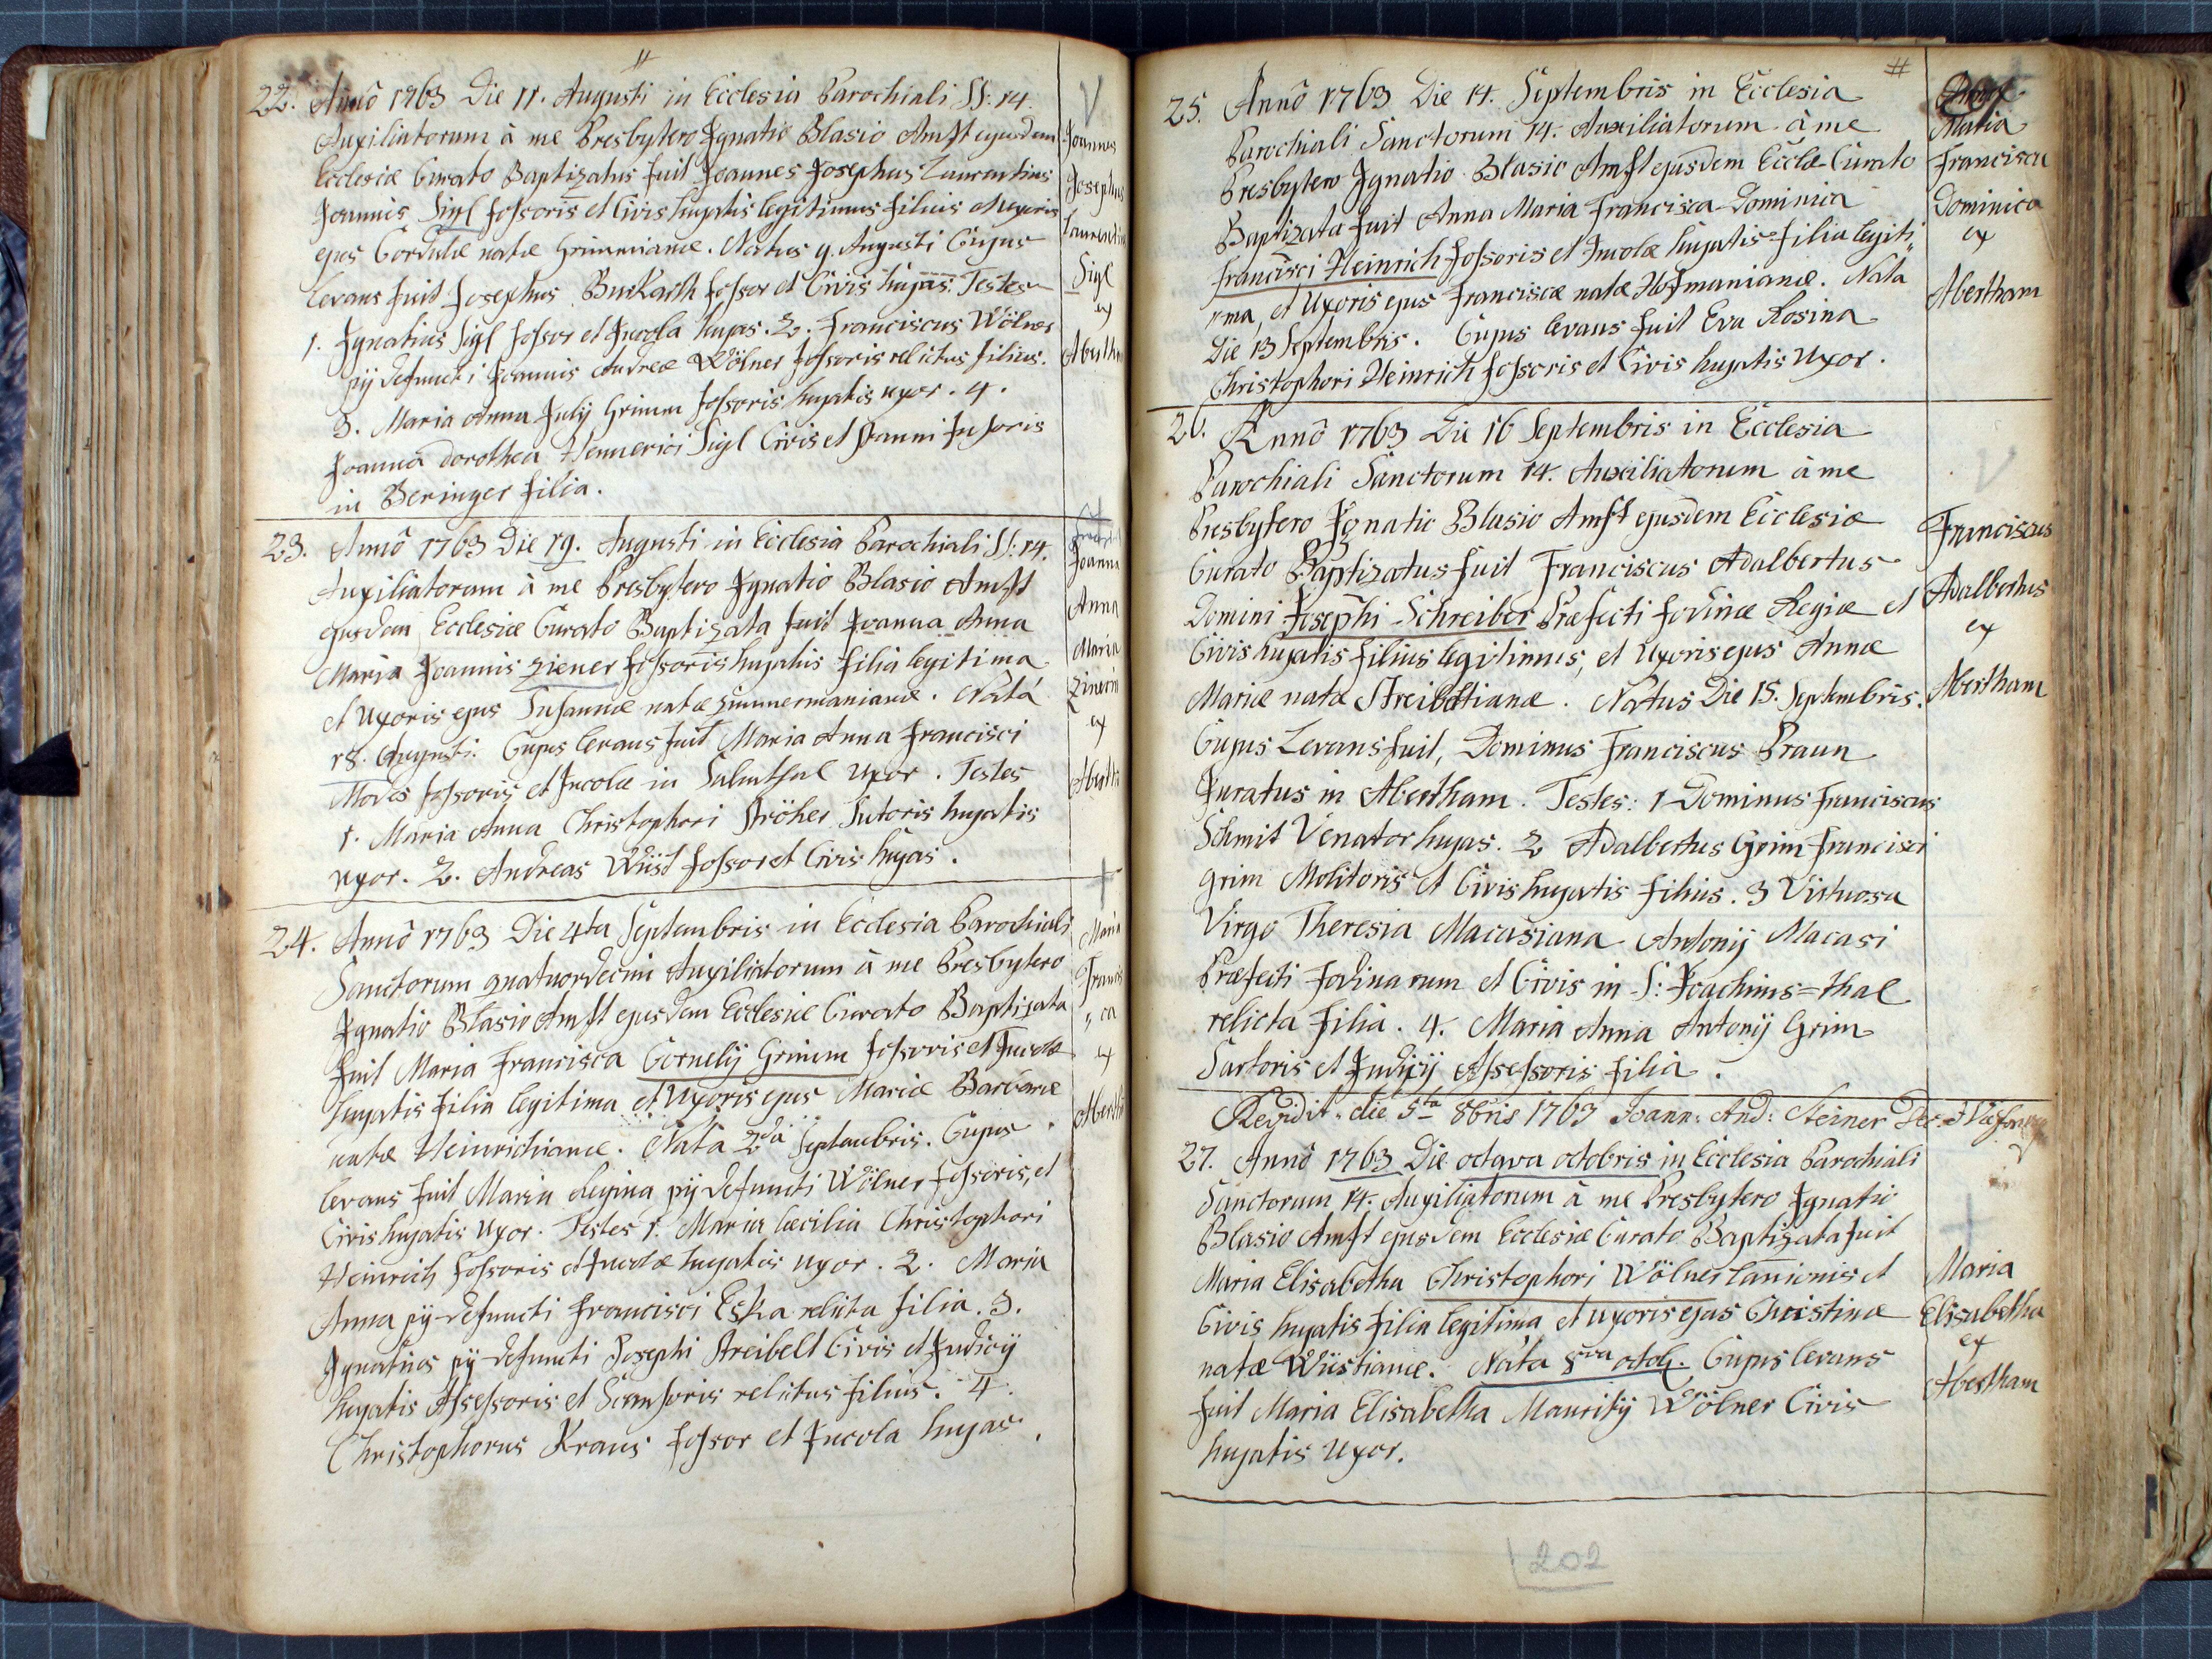 22. Annô 1763 Die 11. Augusti in Ecclesia Parochiali SS: 14.
Auxiliatorum à me Presbytero Ignatio Blasio Amst ejusdem
Ecclesiæ Curato Baptizatus fuit Joannes Josephus Laurentius
Joannis Sigl fossoris et Civis hujatis legitimus filius et uxoris
ejus Cordulæ natæ Grimmianæ. Natus 9. Augusti Cujus
levans fuit Josephus Burkarth fossor et Civis hujas. Testes
1. Ignatius Sigl fossor et Incola hujas. 2. Franciscus Wölner
pÿ defuncti Joannis Andreæ Wölner fossoris relictus filius.
3. Maria Anna Julÿ Grimm fossoris hujatis uxor. 4.
Joanna dorothea Hennerici Sigl Civis et Stanni fusoris
in Beringer filia.
Joannes
Josephus
Laurentius
Sigl
ex
Abertham
23. Annô 1763 Die 19. Augusti in Ecclesia Parochiali SS: 14.
Auxiliatorum à me Presbytero Ignatio Blasio Amst
ejusdem Ecclesiæ Curato Baptizata fuit Joanna Anna
Maria Joannis Ziener fossoris hujatis filia legitima
et Uxoris ejus Susannæ natæ Zimmermanianæ. Nata
18. Augusti. Cujus levans fuit Maria Anna Francisci
Modes fossoris et Incolæ in Salmthal Uxor. Testes
1. Maria Anna Christophori Ströher Sutoris hujatis
uxor. 2. Andreas Wüst fossor et Civis hujas.
Joanna
Anna
Maria
Zinerin
ex
Abertha
24. Annô 1763 Die 4ta Septembris in Ecclesia Parochiali
Sanctorum quatuordecim Auxiliatorum à me Presbytero
Ignatio Blasio Amst ejusdem Ecclesiæ Curato Baptizata
fuit Maria Francisca Cornelÿ Grimm fossoris et Incolæ
hujatis filia legitima et Uxoris ejus Mariæ Barbaræ
natæ Heinrichianæ. Nata 2da Septembris. Cujus
levans fuit Maria Regina pÿ defuncti Wölner fossoris, et
Civis hujatis uxor. Testes 1. Maria Cæcilia Christophori
Heinrich fossoris et Incolæ hujatis uxor. 2. Maria
Anna pÿ defuncti Francisci Eska relicta filia. 3.
Ignatius pÿ defuncti Josephi Streibelt Civis et Judicÿ
hujatis Assessoris et relictus filius. 4.
Christophorus Kraus fossor et Incola hujas.
Maria
Francis
„ca
ex
Aberth
25. Annô 1763 Die 14. Septembris in Ecclesia
Parochiali Sanctorum 14. Auxiliatorum à me
Presbytero Ignatio Blasio Amst ejusdem Ecclæ Curato
Baptizata fuit Anna Maria Francisca Dominica
Francisci Heinrich fossoris et Incolæ hujatis filia legiti„
„ma, et Uxoris ejus Franciscæ natæ Hofmanianæ. Nata
Die 13 Septembris. Cujus levans fuit Eva Rosina
Christophori Heinrich fossoris et Civis hujatis Uxor.
Maria
Francisca
Dominica
ex
Abertham
26. Annô 1763 Die 16 Septembris in Ecclesia
Parochiali Sanctorum 14. Auxiliatorum à me
Presbytero Ignatio Blasio Amst ejusdem Ecclesiæ
Curato Baptizatus fuit Franciscus Adalbertus
Domini Josephi Schreiber Præfecti fodinæ Regiæ et
Civis hujatis filius legitimus, et Uxoris ejus Annæ
Mariæ natæ Streibeltianæ. Natus Die 15. Septembris.
Cujus Levans fuit, Dominus Franciscus Braun
Juratus in Abertham. Testes: 1 Dominus Franciscus
Schmit Venator hujas. 2 Adalbertus Grim Francisci
Grim Molitoris et Civis hujatis filius. 3 Virtuosa
Virgo Theresia Macasiana Antonÿ Macasi
Præfecti Fodinarum et Civis in S: Joachims=thal
relicta filia. 4. Maria Anna Antonÿ Grim
Sartoris et Judicÿ Assessoris filia.
Franciscus
Adalbertus
ex
Abertham
Revidit die 5ta 8bris 1763 Joann: And: Steiner Dec:
27. Annô 1763 Die octava octobris in Ecclesia Parochiali
Sanctorum 14. Auxiliatorum à me Presbytero Ignatio
Blasio Amst ejusdem Ecclesiæ Curato Baptizata fuit
Maria Elisabetha Christophori Wölner lanionis et
Civis hujatis filia legitima et uxoris ejus Christinæ
natæ Wüstianæ. Nata 8va octob. Cujus levans
fuit Maria Elisabetha Mauritÿ Wölner Civis
hujatis Uxor.
Maria
Elisabetha
ex
Abertham
202